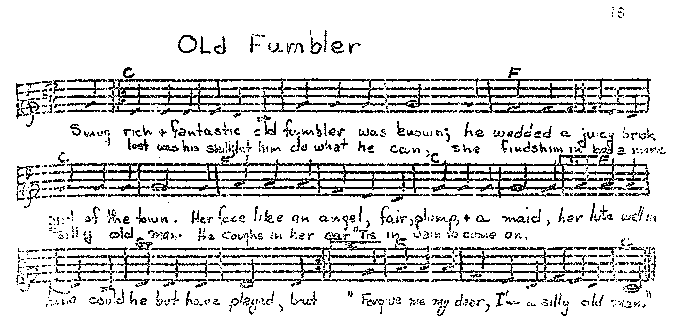 18
OLd Fumbler
C F
Smug rich + fantastic old fumbler was known; he wedded a juicy brok
lost was his skill, light him do what he can, she finds him in bed a mere
C C F
girl of the town. Her face like an angel, fair, plump, + a maid, her lute well in
silly old man. He coughs in her ear "Tis in vain to come on,
could he but have played, but "Forgive me my dear, I'm a silly old man."